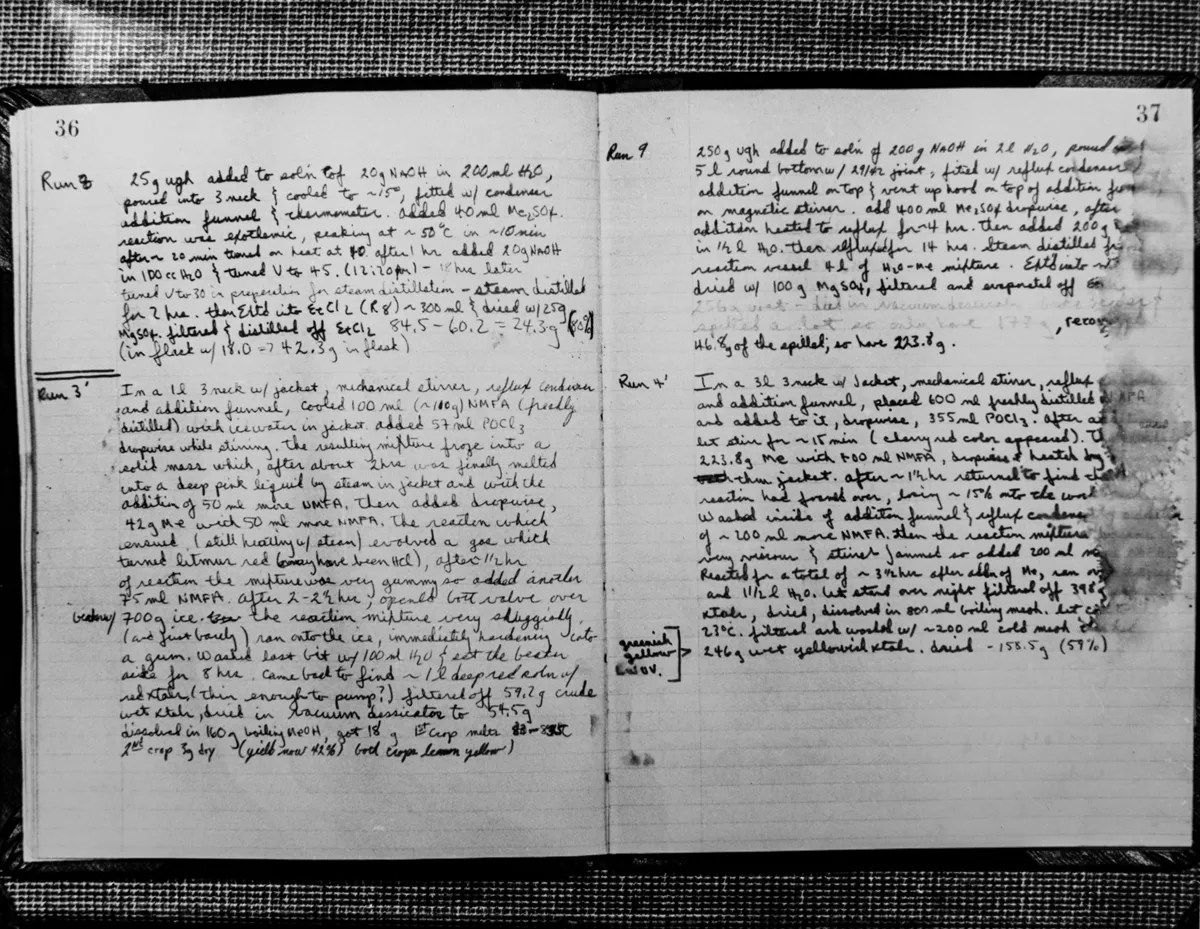 36
Run 8 25g ugh added to soln of 20g NaOH in 200ml H2O,
poured into 3 neck & cooled to ~15°, fitted w/ condenser
addition funnel & thermometer. added 40 ml Me2SOx.
reaction was exothermic, peaking at ~50°C in ~10min
after ~ 20 min turned on heat at 40. after 1 hr added 20g NaOH
in 100cc H2O & turned V to 45. (12:20pm) - hrs later
turned V to 30 in preparation for steam distillation - steam distilled
for 2 hrs. then Extd into EtCl2 (R8) ~ 300 ml & dried w/ 25g
MgSOx. filtered & distilled off EtCl2 84.5 - 60.2 = 24.3g (80%)
(in flask w/ 18.0 => 42.3g in flask)
Run 3' In a 1l 3neck w/ jacket, mechanical stirrer, reflux condenser
and addition funnel, cooled 100 ml (~100g) NMFA (freshly
distilled) with icewater in jacket. added 57 ml POCl3
dropwise while stirring. the resulting mixture froze into a
solid mass which, after about 2hrs was finally melted
into a deep pink liquid by steam in jacket and with the
addition of 50 ml more NMFA. Then added dropwise,
42g Me with 50 ml more NMFA. The reaction which
ensued (still heating w/ steam) evolved a gas which
turned litmus red (may have been HCl), after 1½ hr
of reaction the mixture was very gummy so added another
75ml NMFA. After 2-2½ hrs, opened bott valve over
beaker w/ 700g ice. the reaction mixture very sluggishly
(and just barely) ran onto the ice, immediately hardening into
a gum. Washed last bit w/ 100 ml H2O & set the beaker
aside for 8 hrs. came back to find ~ 1l deep red soln w/
red xtals (thin enough to pump?) filtered off 59.2g crude
wet xtals, dried in vacuum dessicator to 54.5g
dissolved in 160g boiling MeOH, got 18 g 1st crop melts 83-
2nd crop 3g dry (yield now 42%) both crops lemon yellow)
37
Run 9 250g ugh added to soln of 200g NaOH in 2l H2O, poured
5l round bottom w/ 29/42 joint, fitted w/ reflux condenser
addition funnel on top & vent up hood on top of addition
on magnetic stirrer. add 400 ml Me2SOx dropwise, after
addition heated to reflux for ~4 hrs. then added 200g
in ½ l H2O. then refluxed for 14 hrs. Steam distilled
reaction vessel 4l of H2O-Me mixture. Extd into
dried w/ 100g MgSO4, filtered and evaporated off
256g wet - dried in vacuum
spilled a lot so only have 173g, recov
46.8g of the spilled, so have 223.8g.
Run 4' In a 3l 3neck w/ Jacket, mechanical stirrer, reflux
and addition funnel, placed 600 ml freshly distilled
and added to it, dropwise, 355ml POCl3. after
let stir for ~ 15 min (cherry red color appeared).
223.8g Me with 500 ml NMFA, dropwise & heated by
thru jacket. after ~1½ hr returned to find
reaction had foamed over, losing ~ 15% into the
Washed inside of addition funnel & reflux
of ~ 200 ml more NMFA. then the reaction mixture
very viscous & stirrer Jammed so added 200 ml
Reacted for a total of ~ 3½ hrs after addn of Me, ran
and 1½ l H2O. let stand over night filtered off 398g
xtals, dried, dissolved in 800 ml boiling meoh. let
23°C. filtered and washed w/ ~200 ml cold meoh
greenish
yellow
UV. 246g wet yellowish xtals. dried - 155.5g (57%)